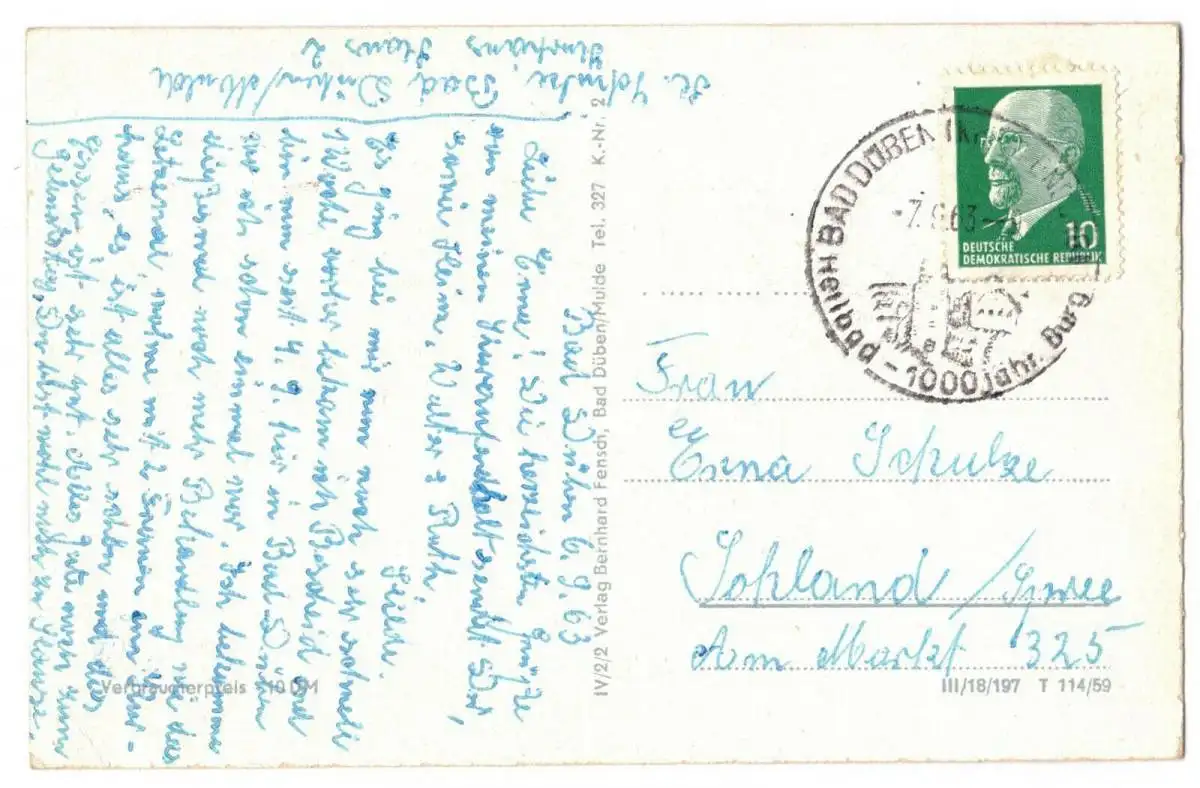 H. Schulze, Bad Düben/Mulde
Kurhaus Haus 2
Bad Düben 6.9.63
Liebe Erna! Die herzlichsten Grüße
von meinem Kuraufenthalt sendet Dir,
sowie Heim, Walter &amp; Ruth,
Es ging bei mir nun auch sehr schnell
1 Woche vorher bekam ich Bescheid und
bin nun seit 4.9. hier in Bad Düben
war ich schon einmal vor. Ich bekomme
noch mehr Behandlung wie das
wohne mit 2 Frauen am Kur-
haus es ist alles sehr sauber und das
Essen ist sehr gut. Alles Gute auch zum
Geburtstag, Du bist wohl nicht zu Hause.
IV/2/2 Verlag Bernhard Fensch, Bad Düben/Mulde Tel. 327 K.-Nr. 2
Verbraucherpreis -,10 DM
Heilbad BAD DÜBEN
-7.9.63-
1000jähr. Burg
10
DEUTSCHE
DEMOKRATISCHE REPUBLIK
Frau
Erna Schulze
Sohland/Spree
Am Markt 325
III/18/197 T 114/59